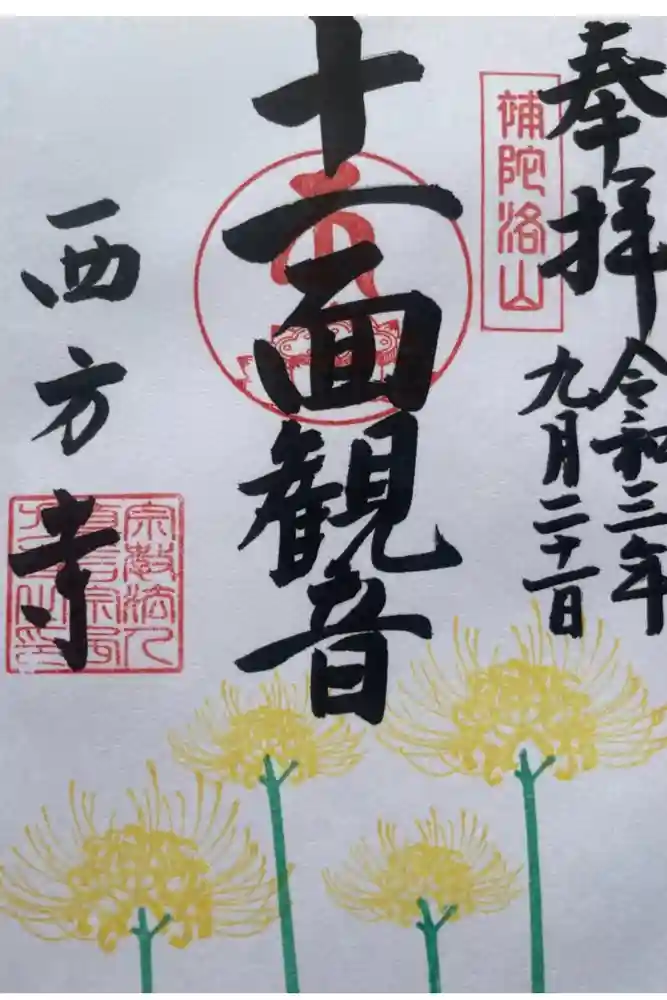 奉拝
令和三年
九月二十一日
補陀洛山
十一面観音
西方寺